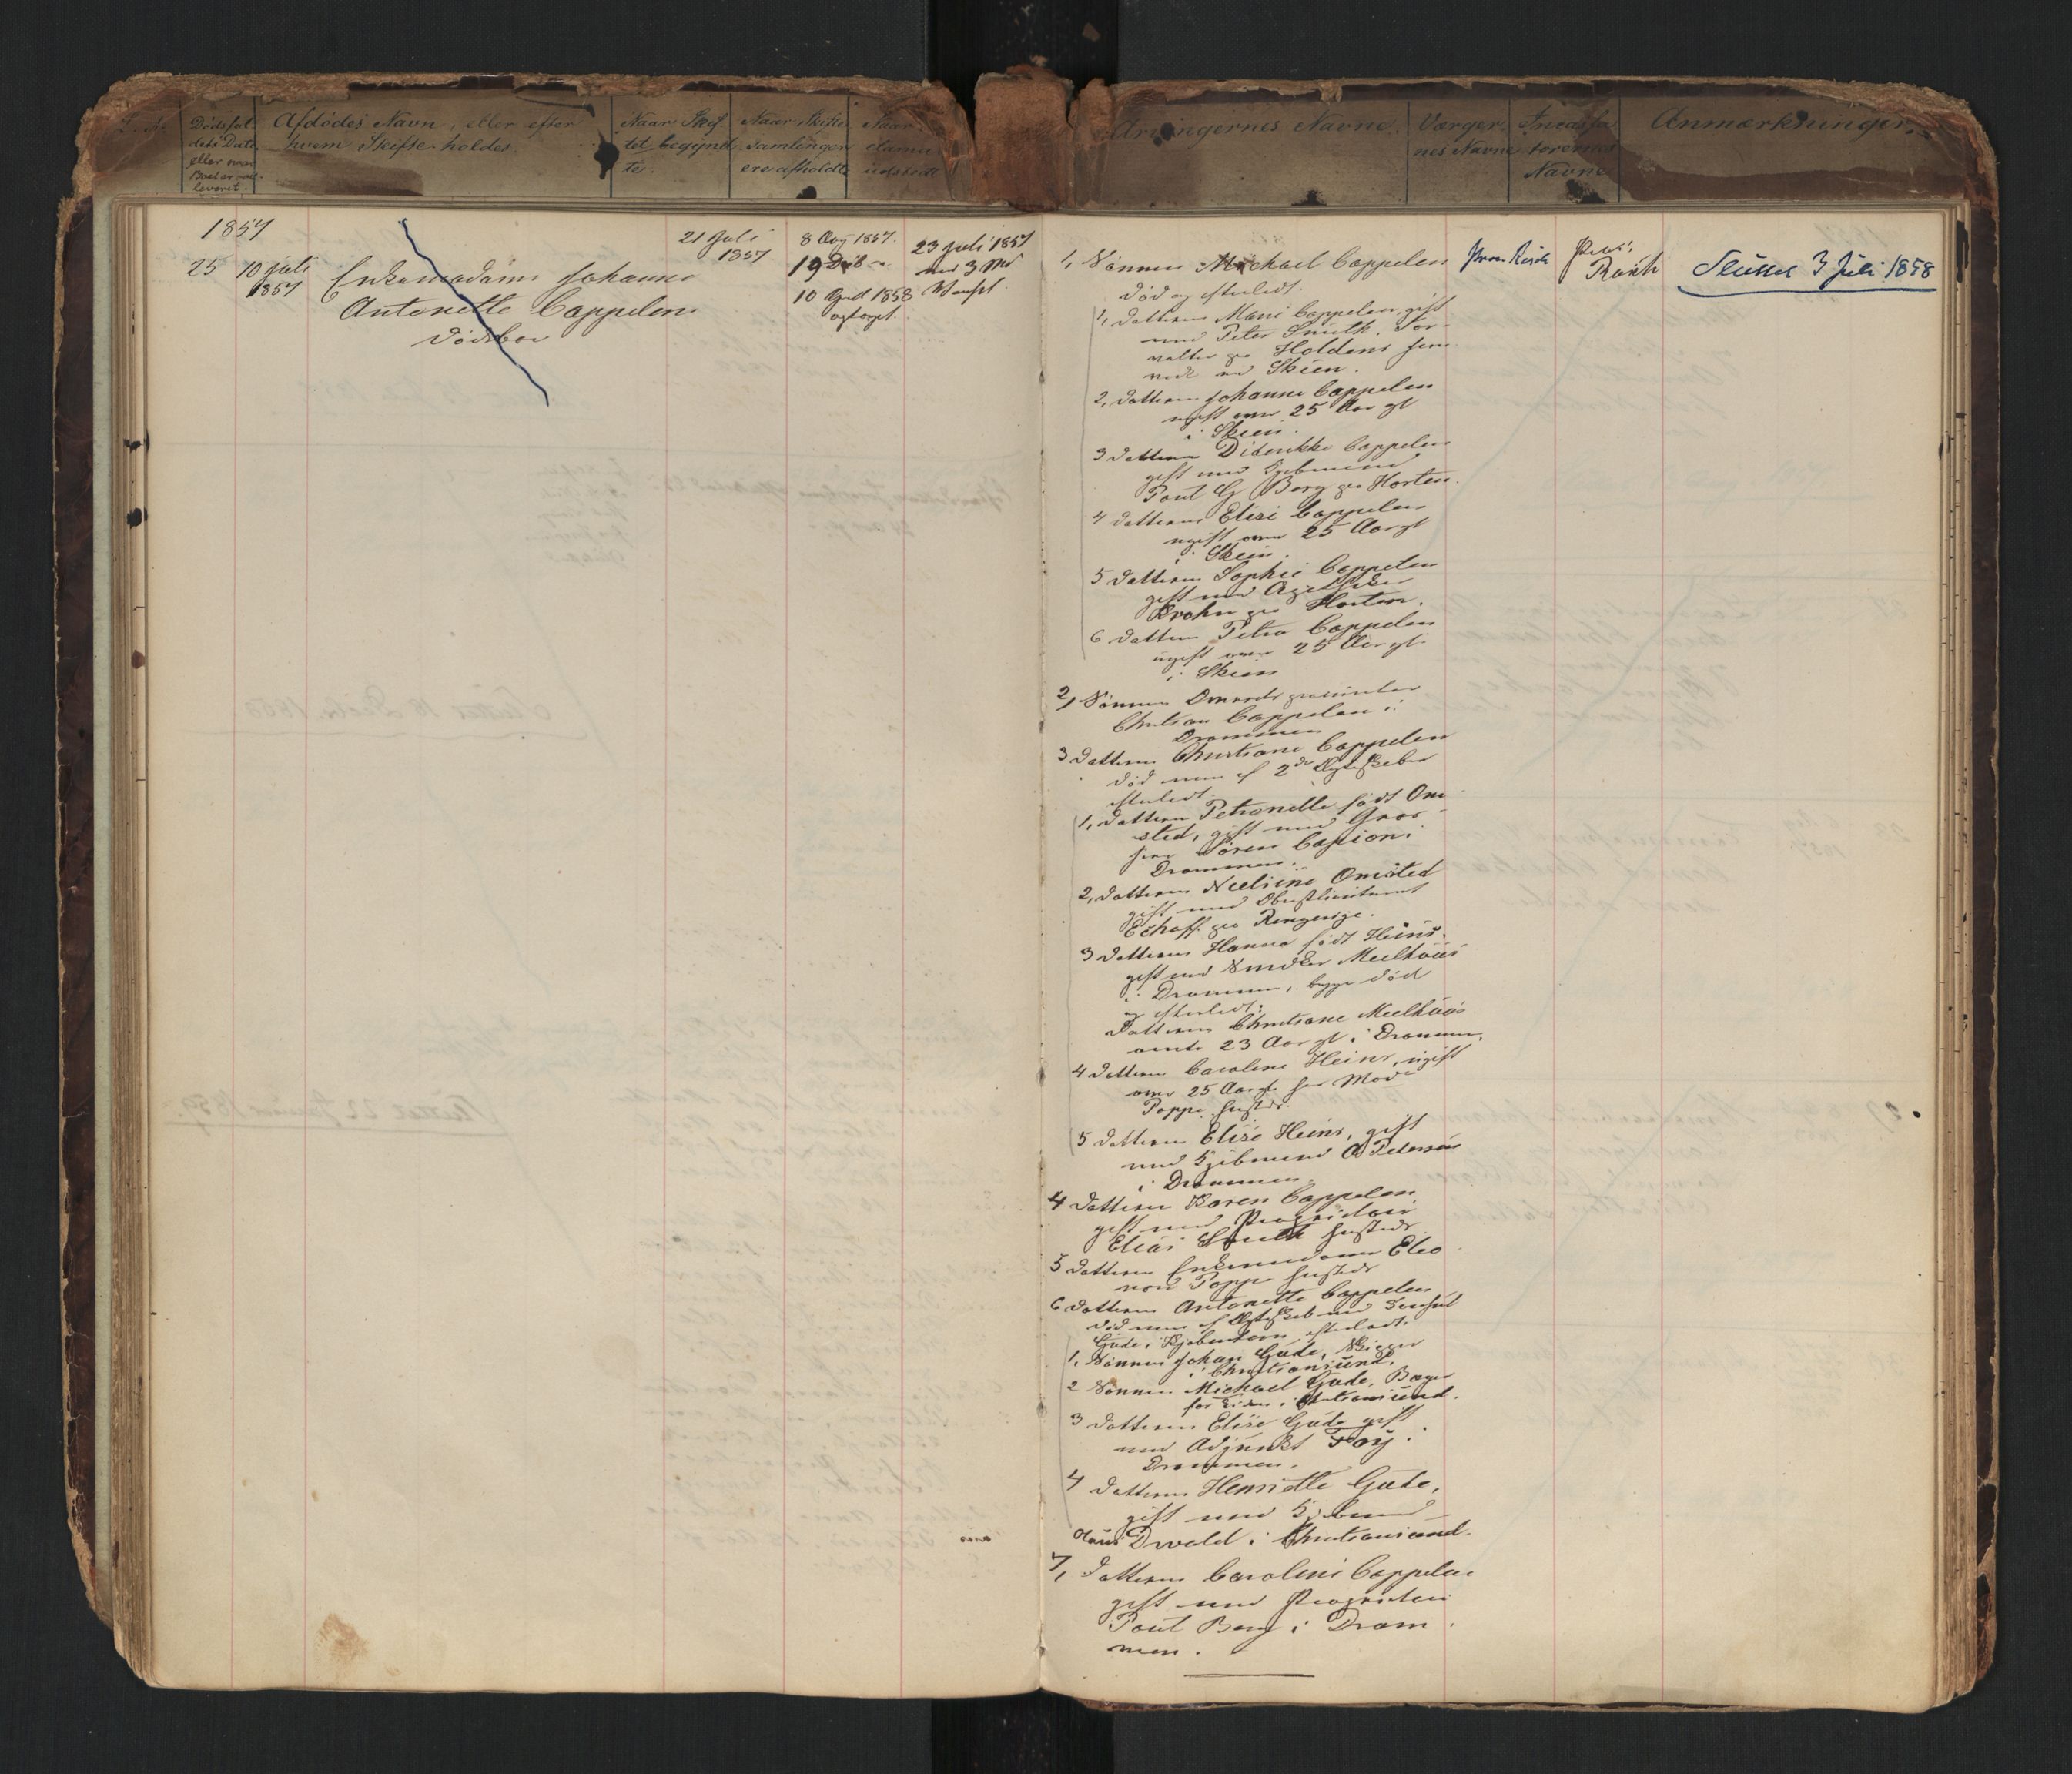 L. No.
Dødsfal-
dets Dato
eller naar
Boet er ove-
leveret.
Afdødes Navn, eller efter
hvem Skifte holdes.
Naar Skif-
tet begynd-
te.
Naar Skifte
samlinger
ere afholdte
Naar
udstedt
Arvingernes Navne.
Værger-
nes Navne
Incassa-
torernes
Navne
Anmærkninger.
1857
25 10 Juli
1857
Enkemadame Johanne
Antonette Cappelens
Dødsbo
21 Juli
1857
8 Aug 1857.
19 Dcb
10 April 1858
23 Juli 1857
med 3 Md
Varsel
1, Sønnen Michael Cappelen
død og efterladt:
1, Datteren Marie Cappelen gift
med Peter Smith, For-
valter paa Holdens Jern-
værk ved Skien.
2, Datteren Johanne Cappelen
ugift over 25 Aar gl
i Skien.
3 Datteren Didrikke Cappelen
gift med Kjøbmand
Poul G Berg paa Horten.
4 Datteren Elise Cappelen
ugift over 25 Aar gl
i Skien.
5 Datteren Sophie Cappelen
gift med Apotheker
Krohn paa Horten.
6 Datteren Petra Cappelen
ugift over 25 Aar gl.
i Skien
2, Sønnen
Christian Cappelen i
Drammen
3 Datteren Christiane Cappelen
død men af 2de Ægteskaber
efterladt
1, Datteren Petronelle født Om-
sted, gift med Gros-
serer Søren Carion i
Drammen.
2, Datteren Nielsine Omsted
gift med Oberstlieutenant
Eckhoff paa Ringerige.
3 Datteren Hanna født Heins
gift med Snedker Meelhuus
i Drammen, begge død
og efterladt:
Datteren Christiane Meelhuus
omtr 23 Aar gl i Drammen.
4 Datteren Caroline Heins, ugift
over 25 Aar gl hos Mad
Poppe her Sted
5 Datteren Elise Heins, gift
med Kjøbmand A Petersen
i Drammen.
4 Datteren Karen Cappelen
gift med Proprietair
Elias Smith her Sted
5 Datteren Enkemadame Eleo-
nora Poppe her Sted
6 Datteren Antonette Cappelen
død men af Ægteskab med Consul
Gude i Kjøbenhavn efterladt.
1, Sønnen Johan Gude,
i Christiansund.
2 Sønnen Michael Gude, Borger
for Tiden i Christiansund.
3 Datteren Elise Gude gift
med Adjunkt Foÿ i
Drammen.
4 Datteren Henriette Gude,
gift med Kjøbmand
Claus Dwald i Christiansand.
7, Datteren Caroline Cappelen
gift med Proprietair
Poul Berg i Dram-
men.
Rasch
Proc.
Rasch
Sluttet 3 Juli 1858